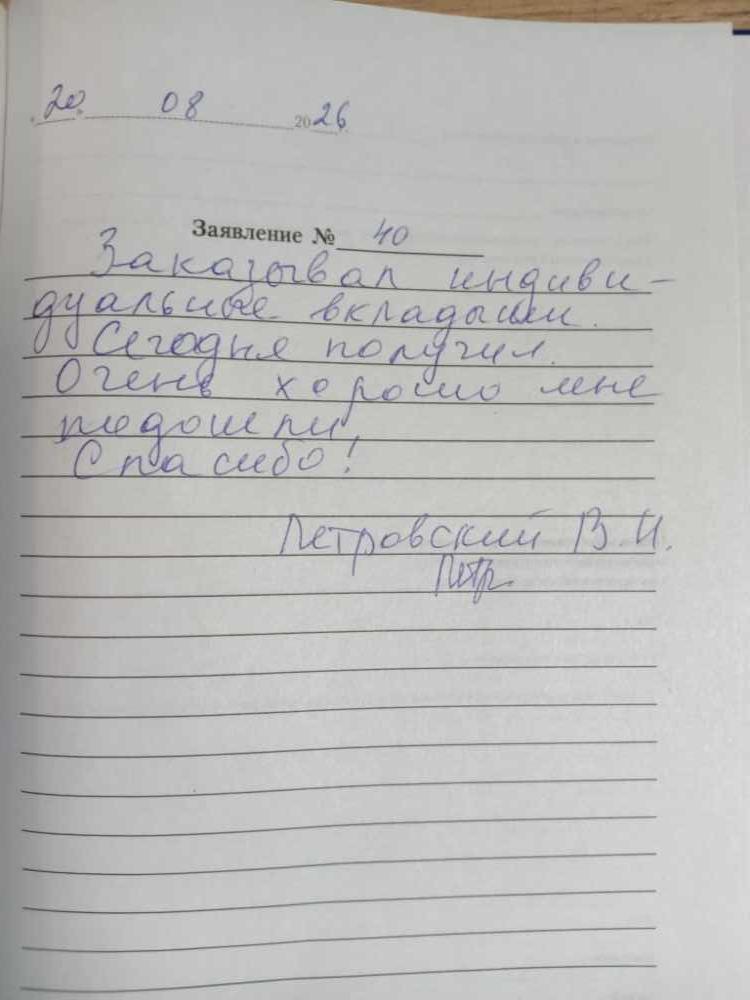 20. 08 2026
Заявление № 40
Заказывал индиви-
дуальные вкладыши.
Сегодня получил.
Очень хорошо мне
подошли,
Спасибо!
Петровский В.И.
Петр